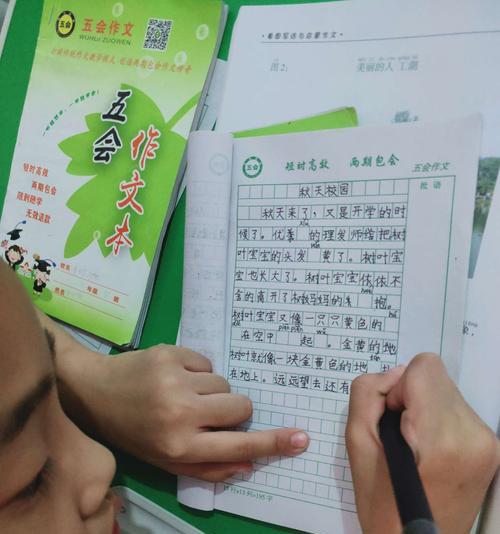 五会作文
WUHUI ZUOWEN
打破传统作文教学模式 创造两期包会作文传奇
一学就学会!
五会
作文本
短时高效
两期包会
随到随学
无效退款
姓名
年级
班
看图写话与启蒙作文
图2:
美丽的人工湖
五会
短时高效 两期包会 五会作文
批语
秋天校园
秋天来了,又是开学的时
候了。优秀的理发师给把树
叶宝宝的头发 黄了。树叶宝
宝也长大了。树叶宝宝依依不
舍的离开了树妈妈的怀抱
树叶宝宝又像一只只黄色的
在空中 起。金黄的地
树叶就像一块金黄色的地
在地上。远远望去还有
15×13=195字